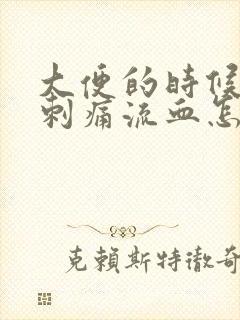 大便的時候
刺痛流血怎
克賴斯特徹奇